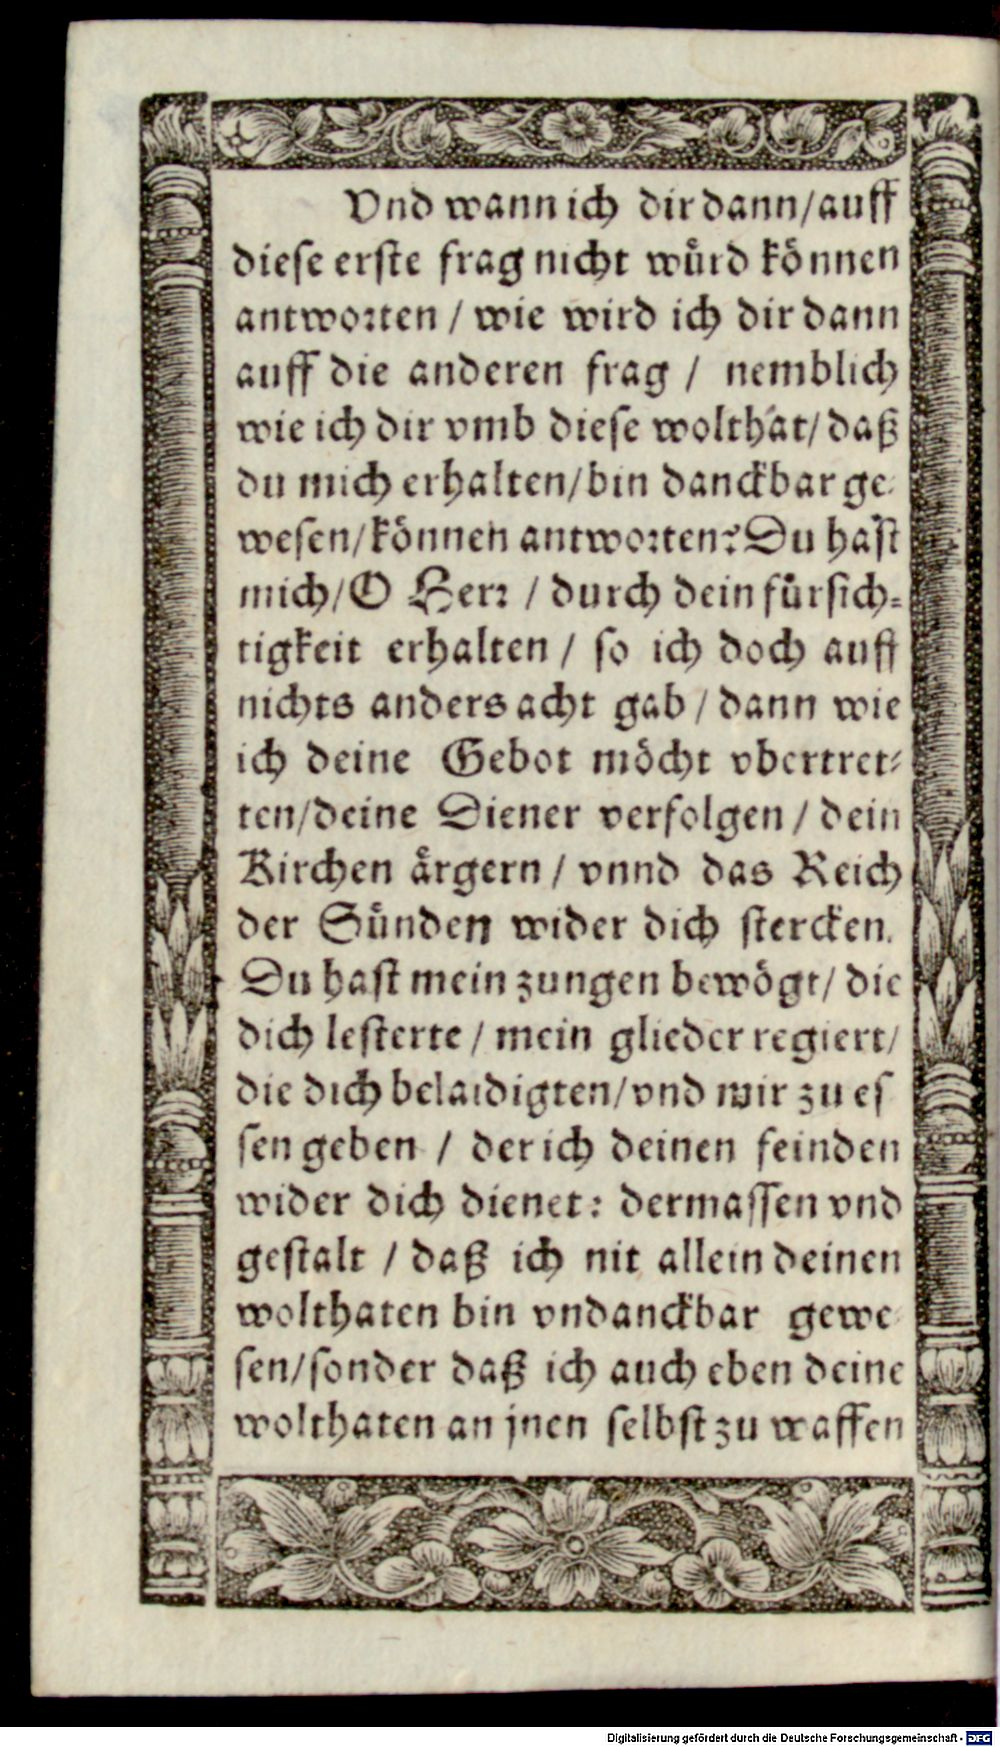 Vnd wann ich dir dann/auff
diese erste frag nicht würd können
antworten / wie wird ich dir dann
auff die anderen frag / nemblich
wie ich dir vmb diese wolthat/ daß
du mich erhalten/bin danckbar ge-
wesen/können antworten? Du hast
mich/O Herr / durch dein fürsich-
tigkeit erhalten / so ich doch auff
nichts anders acht gab / dann wie
ich deine Gebot möcht vbertret-
ten/deine Diener verfolgen / dein
Kirchen ärgern / vnnd das Reich
der Sünden wider dich stercken.
Du hast mein zungen bewögt/ die
dich lesterte / mein glieder regiert/
die dich belaidigten/vnd mir zu es
sen geben / der ich deinen feinden
wider dich dienet: dermassen vnd
gestalt / daß ich nit allein deinen
wolthaten bin vndanckbar gewe-
sen/sonder daß ich auch eben deine
wolthaten an jnen selbst zu waffen
Digitalisierung gefördert durch die Deutsche Forschungsgemeinschaft - DFG